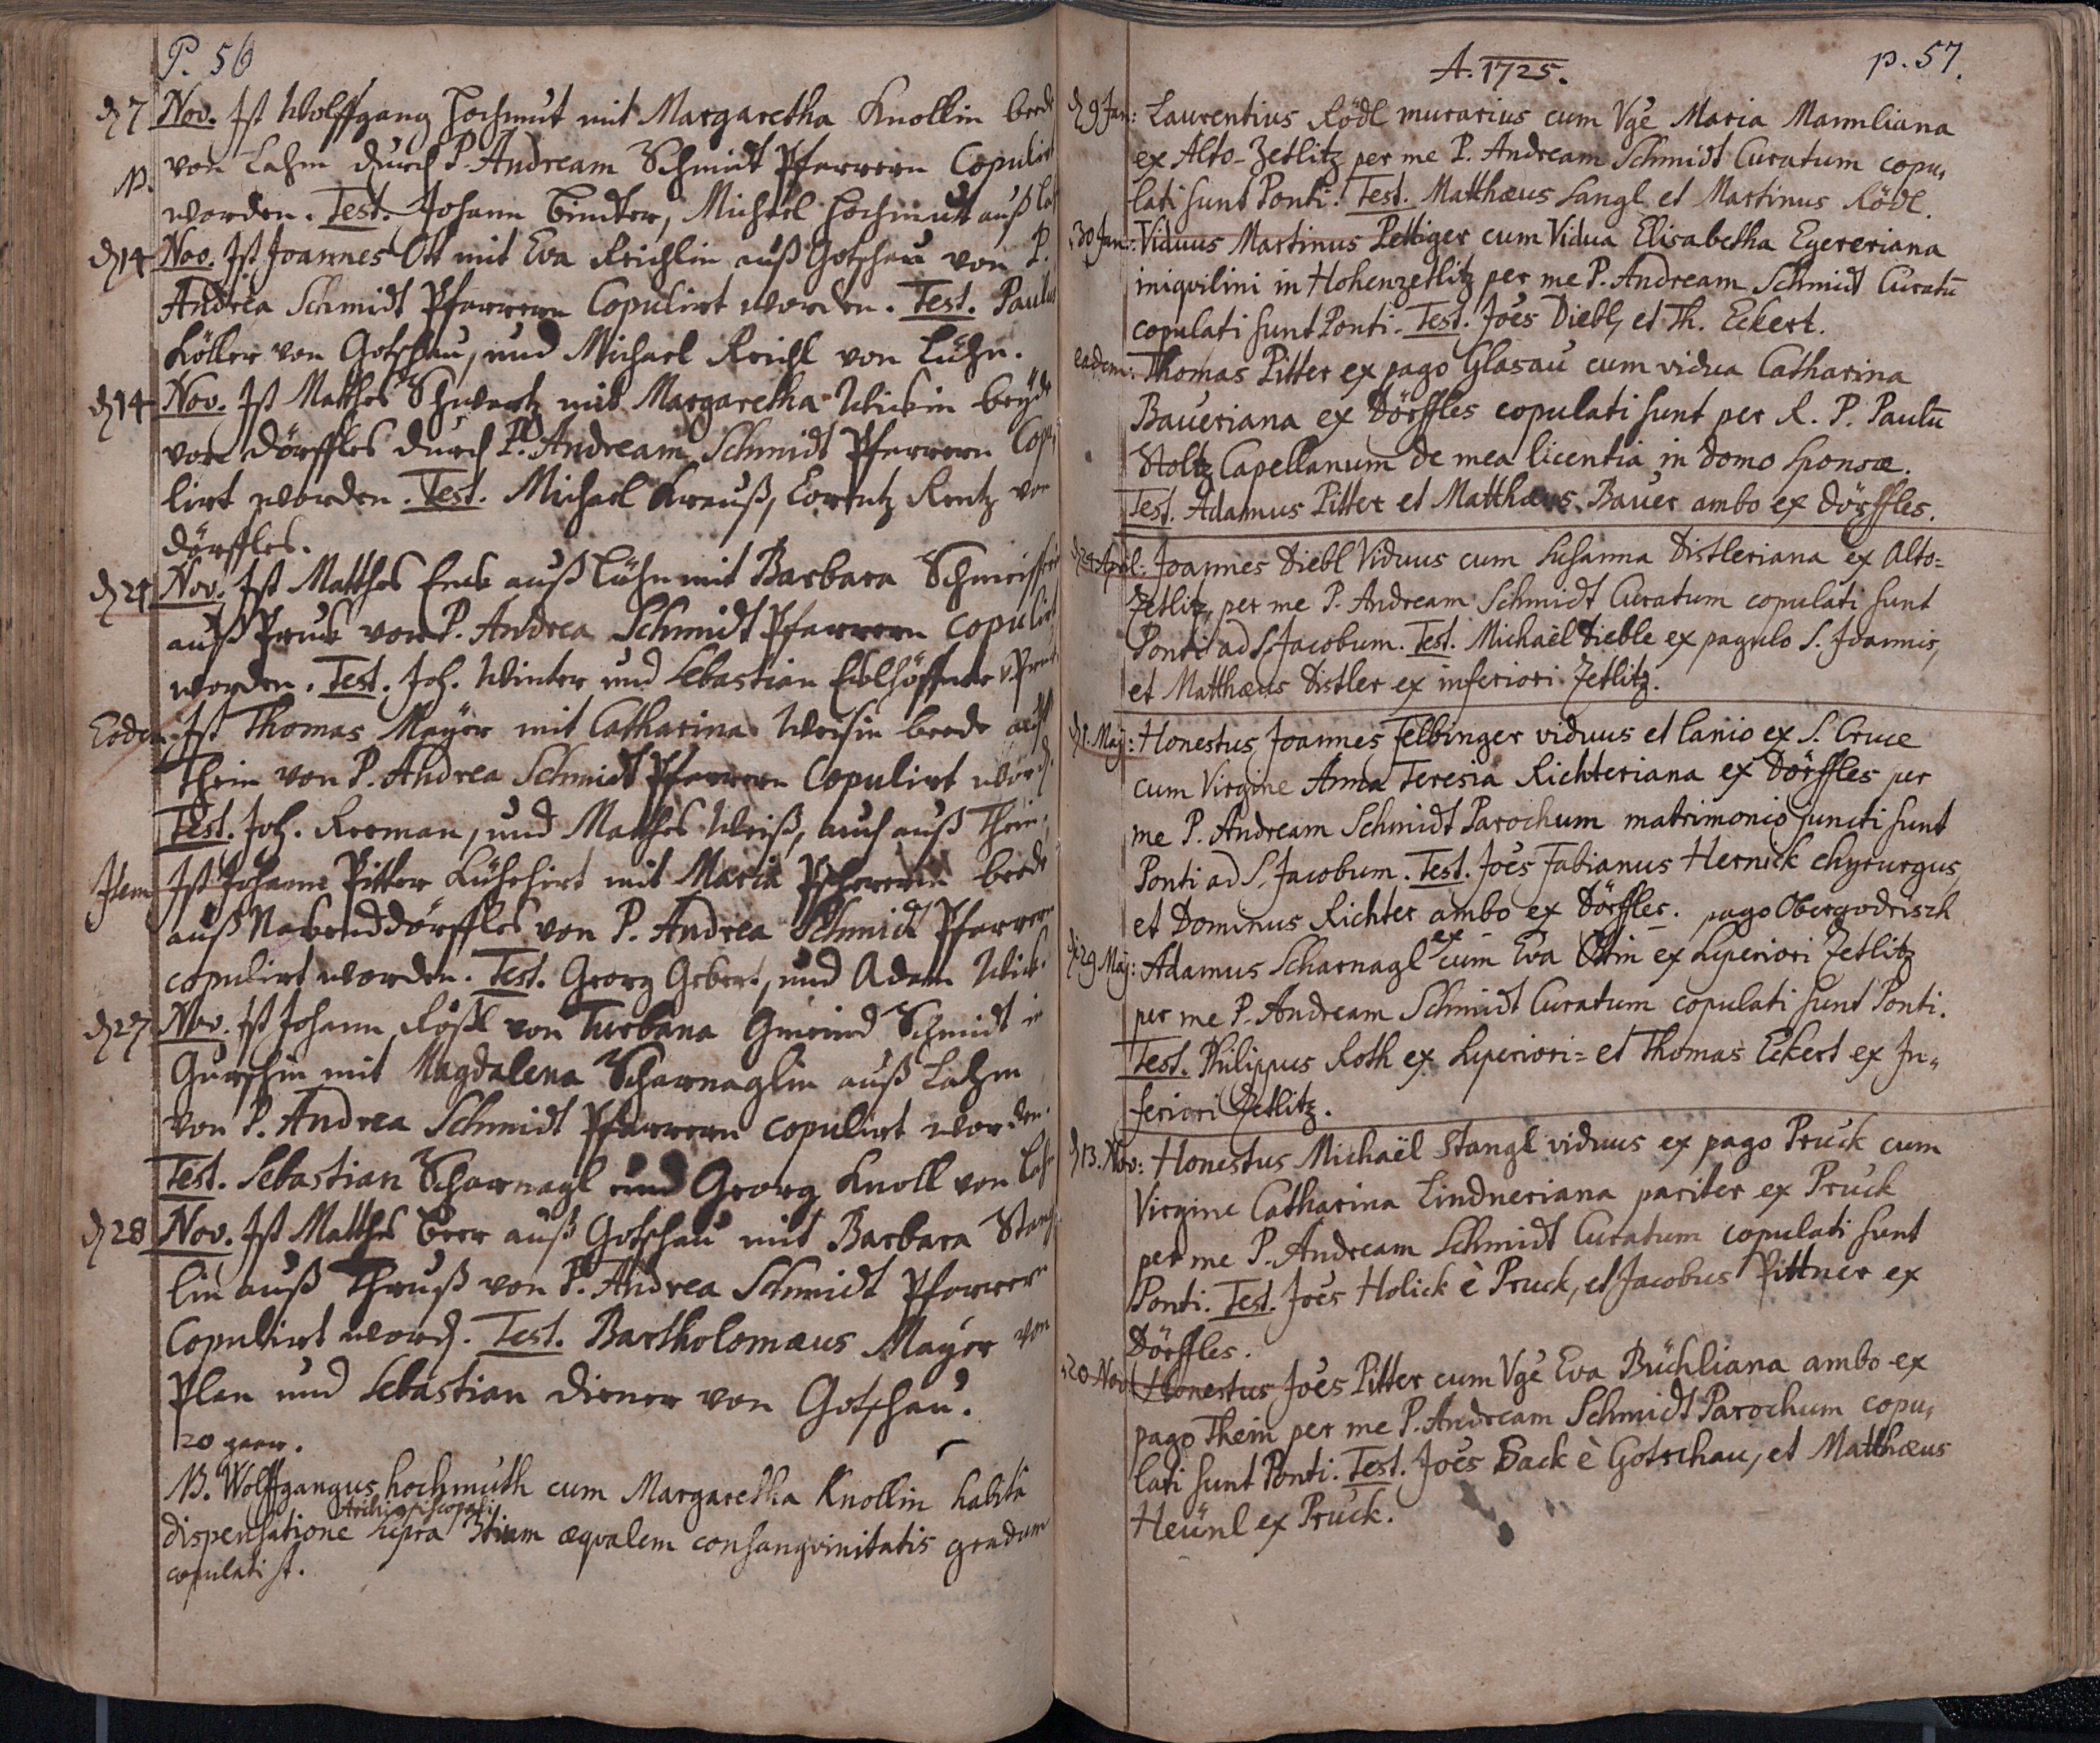 P. 56
d 7 Nov. Ist Wolffgang Hochmut mit Margaretha Knollin beede
von Lahm durch P. Andream Schmidt Pfarrern Copulirt
worden. Test. Johann Bindter, Michael Hochmutt auß
d 14 Nov. Ist Joannes Ott mit Eva Reichlin auß Gotschau von P.
Andrea Schmidt Pfarrern Copulirt worden. Test. Paulus
Köller von Gotschau, und Michael Reichl von Lühn.
d 14 Nov. Ist Matthes Schwartz mit Margaretha Wickin beyde
von Dörffles durch P. Andream Schmidt Pfarrern Copu
lirt worden. Test. Michael Krauß, Lorentz Rentz von
Dörffles.
d 21 Nov. Ist Matthes auß Lühn mit Barbara
auß Pruk von P. Andrea Schmidt Pfarrern copulirt
worden. Test. Joh. Winter und Sebastian
Eodem Ist Thomas Mayer mit Catharina Weisin beede auß
Thein von P. Andrea Schmidt Pfarrern Copulirt word.
Test. Joh. und Matthes Weiß, auch auß Thein.
Item Ist Johann Pitter Kühehirt mit Maria beede
auß Nabenddörffles von P. Andrea Schmidt Pfarrern
copulirt worden. Test. Georg Gebert, und Adam Wick.
d 27 Nov. ist Johann Rößl von Turbana Gmeind Schmidt in
mit Magdalena Scharnaglin auß Lahm
von P. Andrea Schmidt Pfarrern copulirt worden.
Test. Sebastian Scharnagl und Georg Knoll von
d 28 Nov. Ist Matthes Beer auß Gotschau mit Barbara Stang
lin auß von P. Andrea Schmidt Pfarrern
Copulirt word. Test. Bartholomæus Mayer von
Plan und Sebastian Diener von Gotschau.
20 paar.
NB. Wolffgangus hochmuth cum Margaretha Knollin habitâ
Archiepiscopali
dispensatione supra 3tium æqvalem consangvinitatis gradum
copulati st.
A. 1725. p. 57.
d 9 Jan: Laurentius Rödl murarius cum Vge Maria Mannliana
ex Alto-Zetlitz per me P. Andream Schmidt Curatum copu,
lati sunt Ponti. Test. Matthæus Langl et Martinus Rödl.
30 Jan: Viduus Martinus Pettiger cum Vidua Elisabetha Egereriana
inqvilini in Hohenzetlitz per me P. Andream Schmidt Curatū
copulati sunt Ponti. Test. Joes Diebl, et Th. Eckert.
eadem: Thomas Pitter ex pago Glasau cum vidua Catharina
Baueriana ex Dörffles copulati sunt per R. P. Paulū
Stoltz Capellanum de mea licentia in domo sponsæ.
Test. Adamus Pitter et Matthæus Bauer ambo ex Dörffles.
d 24 April: Joannes Diebl Viduus cum Susanna Distleriana ex Alto=
Zetlitz, per me P. Andream Schmidt Curatum copulati sunt
Ponti ad S. Jacobum. Test. Michaël Dieble ex pagulo S. Joannis,
et Matthæus Distler ex inferiori Zetlitz.
d 1. Maij: Honestus Joannes Felbinger viduus et lanio ex S. Cruce
cum Virgine Anna Teresia Richteriana ex Dörffles per
me P. Andream Schmidt Parochum matrimonio juncti sunt
Ponti ad S. Jacobum. Test. Joes Fabianus Hernick chyrurgus,
et Dominus Richter ambo ex Dörffles. pago Obergodrisch
d 29 Maij: Adamus Scharnagl ex cum Eva Ottin ex superiori Zetlitz
per me P. Andream Schmidt Curatum copulati sunt Ponti.
Test. Philippus Roth ex superiori= et Thomas Eckert ex In=
feriori Zetlitz.
d 13. Nov: Honestus Michaël Stangl viduus ex pago Pruck cum
Virgine Catharina Lindneriana pariter ex Pruck
per me P. Andream Schmidt Curatum copulati sunt
Ponti. Test. Joes Holick è Pruck, et Jacobus Pittner ex
Dörffles.
20 Nov Honestus Joes Pitter cum Vge Eva Büchliana ambo ex
pago Thein per me P. Andream Schmidt Parochum copu,
lati sunt Ponti. Test. Joes Sack è Gotschau, et Matthæus
Heünl ex Pruck.